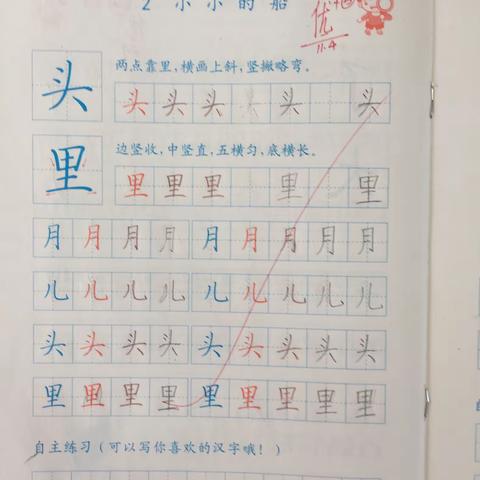 2 小小的船
优
11.4
头
两点靠里，横画上斜，竖撇略弯。
头头头头头 头
里
边竖收，中竖直，五横匀，底横长。
里里里 里 里
月月月月月月月月月
儿儿儿儿儿儿儿儿儿
头头头头头头头头头
里里里里里里里里里
自主练习（可以写你喜欢的汉字哦！）